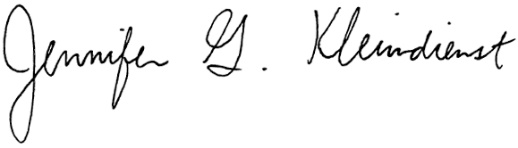 Jennifer G. Kleindienst